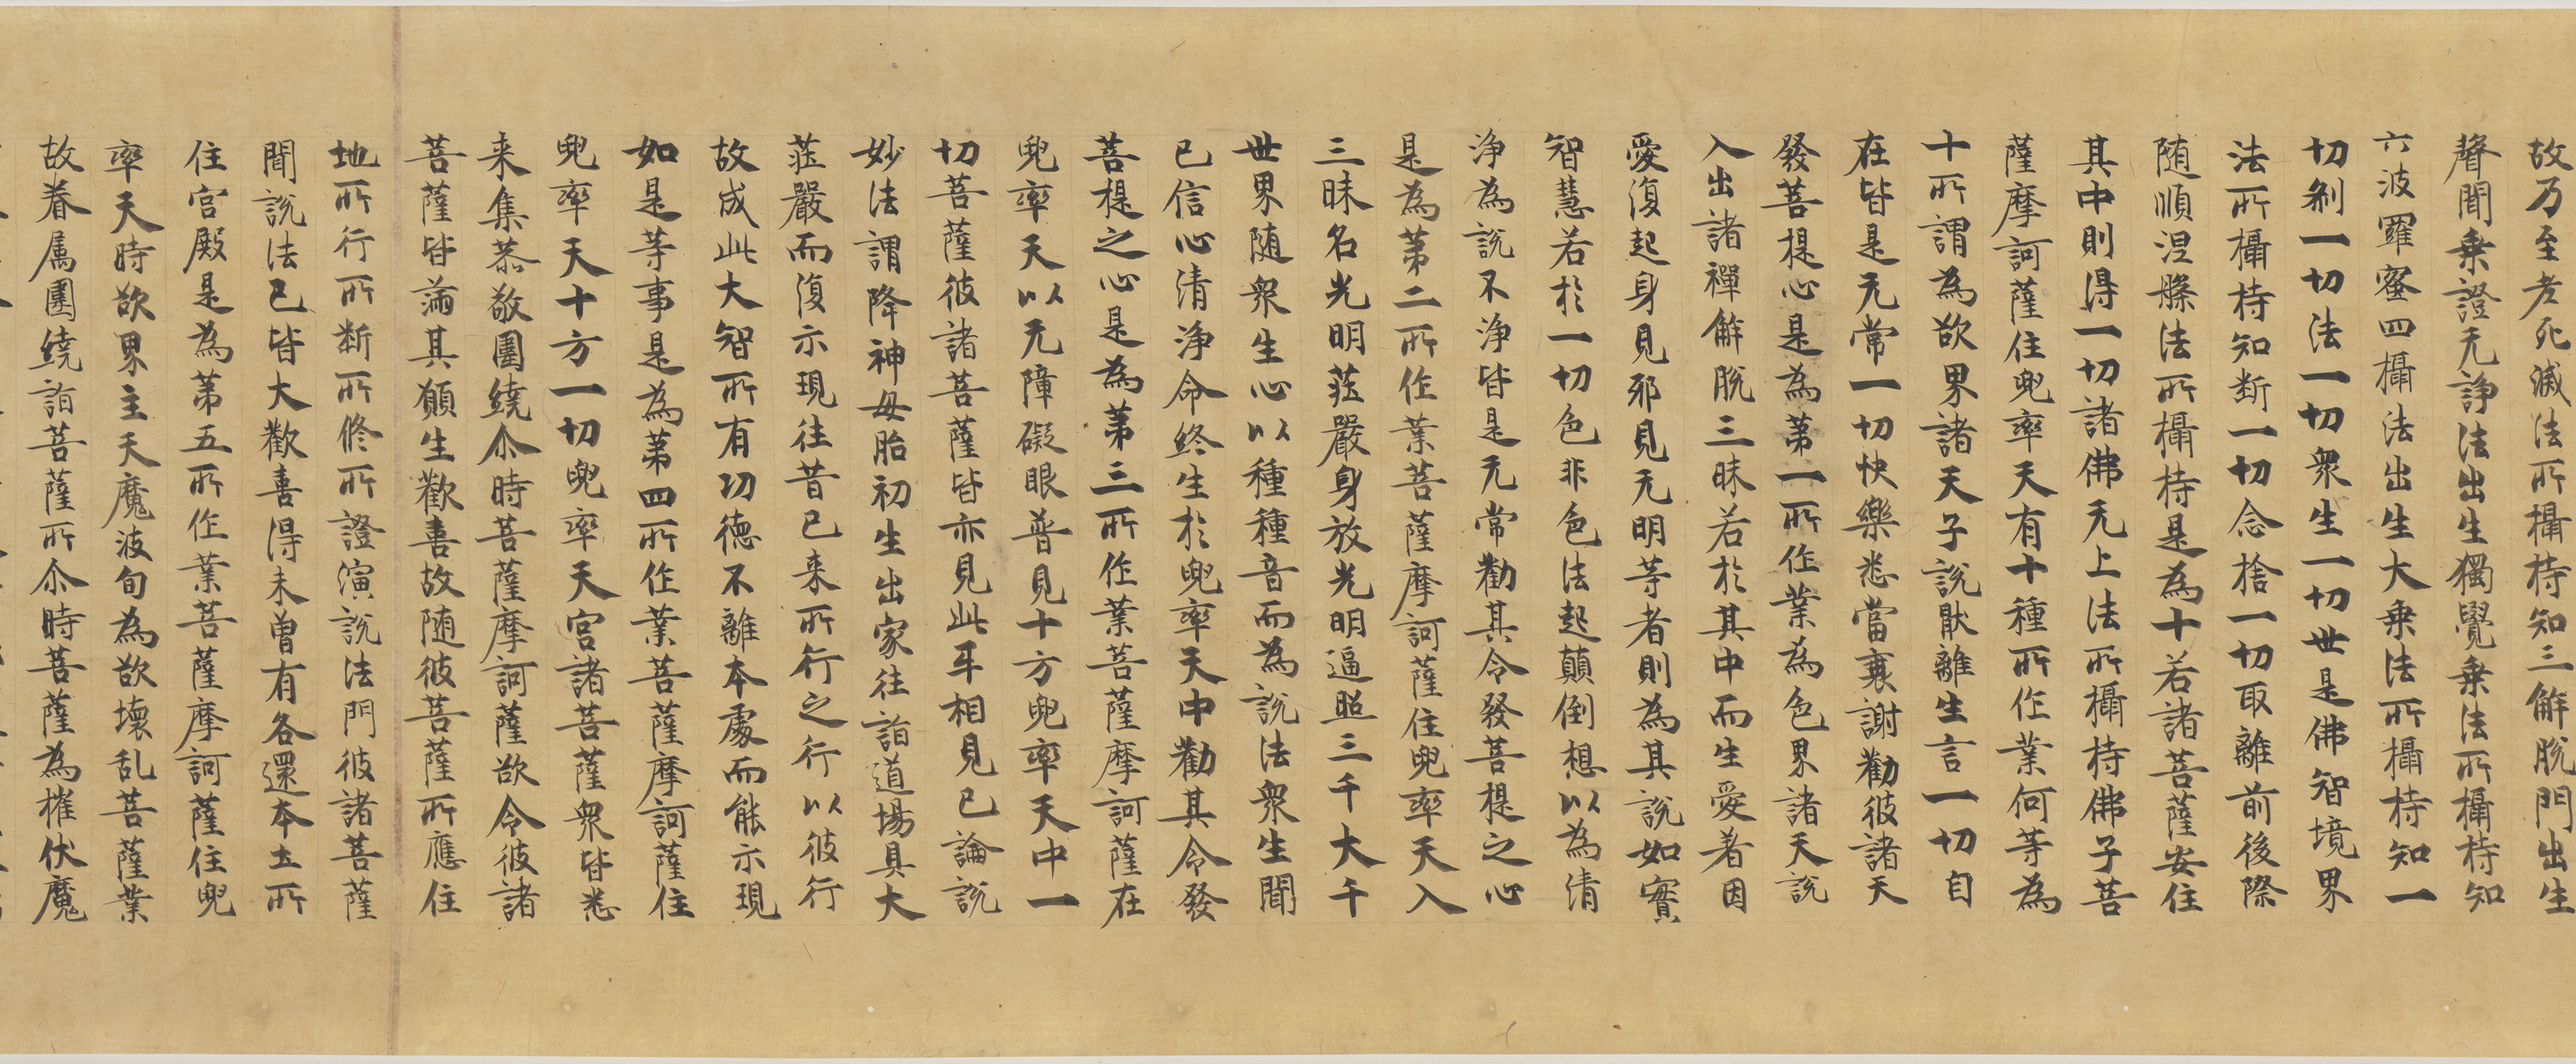 故乃至老死滅法所攝持知三解脫門出生
聲聞乗證无諍法出生獨覺乗法所攝持知
六波羅蜜四攝法出生大乗法所攝持知一
切刹一切法一切衆生一切世是佛智境界
法所攝持知断一切念捨一切取離前後際
随順涅槃法所攝持是為十若諸菩薩安住
其中則得一切諸佛无上法所攝持佛子菩
薩摩訶薩住兜率天有十種所作業何等為
十所謂為欲界諸天子說猒離生言一切自
在皆是无常一切快樂悉當衰謝勸彼諸天
發菩提心是為第一所作業為色界諸天說
入出諸禪解脫三昧若於其中而生愛著因
愛復起身見邪見无明等者則為其說如實
智慧若於一切色非色法起顛倒想以為清
浄為說不浄皆是无常勸其令發菩提之心
是為第二所作業菩薩摩訶薩住兜率天入
三昧名光明莊嚴身放光明遍照三千大千
世界随衆生心以種種音而為說法衆生聞
已信心清浄命終生於兜率天中勸其令發
菩提之心是為第三所作業菩薩摩訶薩在
兜率天以无障礙眼普見十方兜率天中一
切菩薩彼諸菩薩皆亦見此互相見已論說
妙法謂降神母胎初生出家往詣道場具大
莊嚴而復示現往昔已来所行之行以彼行
故成此大智所有功德不離本處而能示現
如是等事是為第四所作業菩薩摩訶薩住
兜率天十方一切兜率天宮諸菩薩衆皆悉
来集恭敬圍繞尒時菩薩摩訶薩欲令彼諸
菩薩皆滿其願生歡喜故随彼菩薩所應住
地所行所断所修所證演說法門彼諸菩薩
聞說法已皆大歡喜得未曾有各還本土所
住宮殿是為第五所作業菩薩摩訶薩住兜
率天時欲界主天魔波旬為欲壊乱菩薩業
故眷属圍繞詣菩薩所尒時菩薩為摧伏魔